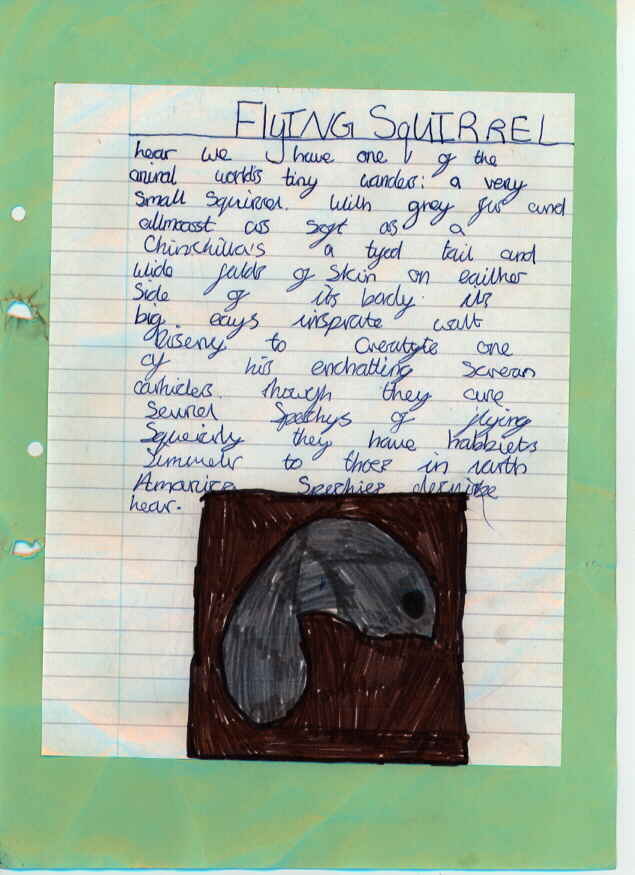 FlyING SqUIRREL
hear we have one of the
animal worlds tiny wonders: a very
Small Squirrel. With grey fur and
allmoast as soft as a
Chinchilla's a tyed tail and
wide folds of Skin on eaither
Side of its body. its
big eays insprate walt
Diseny to Creatyte one
of his enchatting Screan
carhicters. though they are
Sevrel Spechys of flying
Squeirly they have habbiets
Simmeler to those in north
Amarica Spechies
hear.